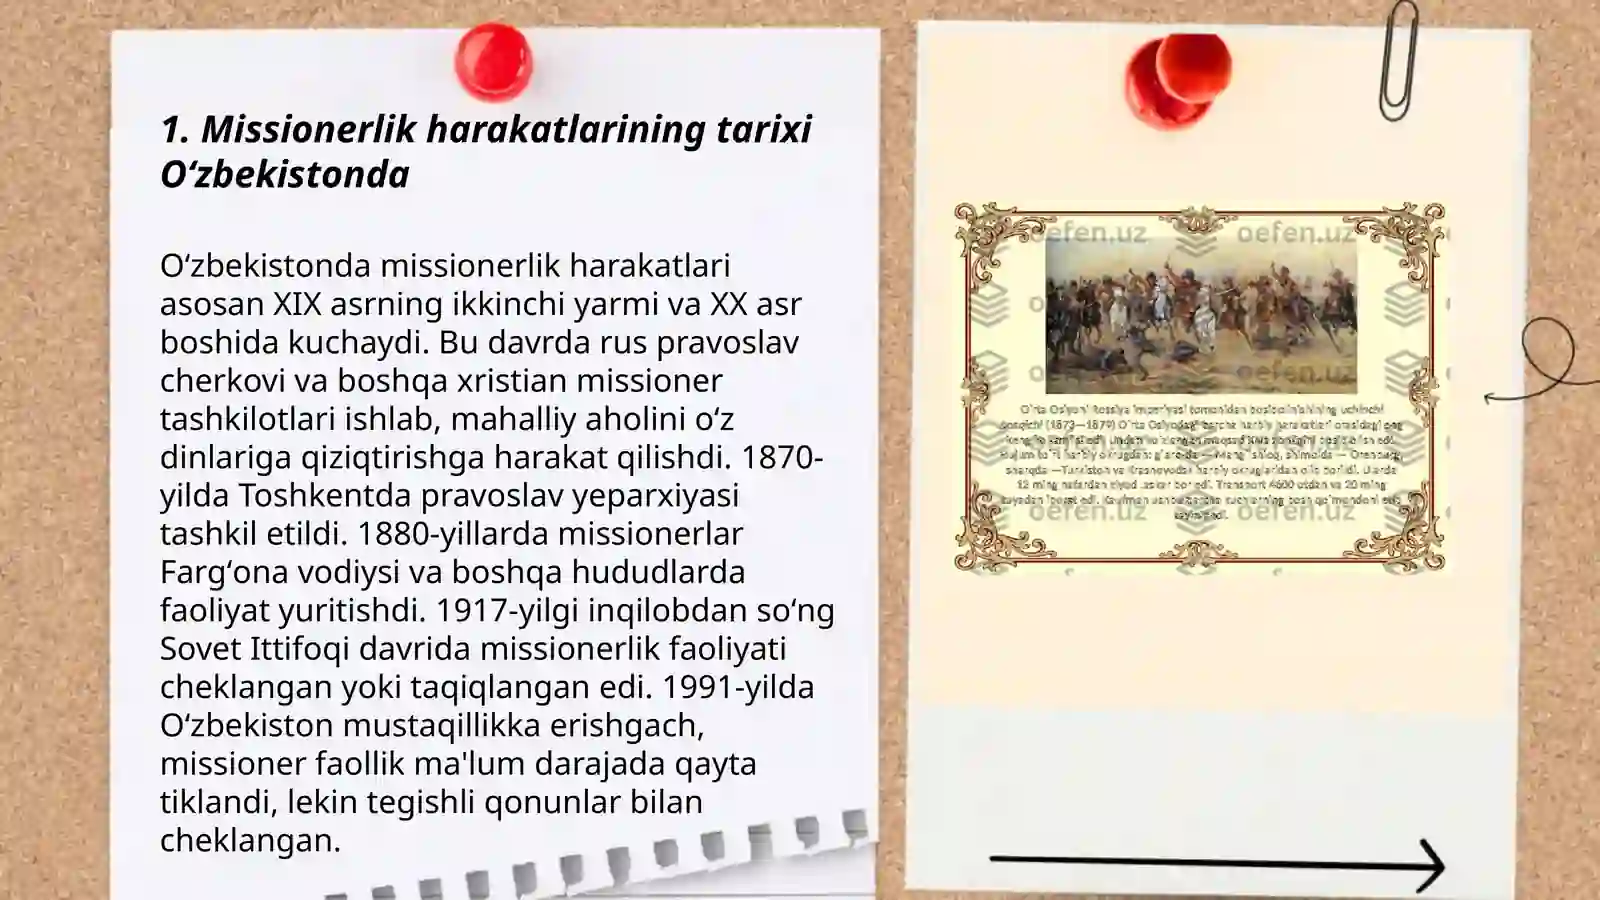 1. Missionerlik harakatlarining tarixi
O‘zbekistonda
O‘zbekistonda missionerlik harakatlari
asosan XIX asrning ikkinchi yarmi va XX asr
boshida kuchaydi. Bu davrda rus pravoslav
cherkovi va boshqa xristian missioner
tashkilotlari ishlab, mahalliy aholini o‘z
dinlariga qiziqtirishga harakat qilishdi. 1870-
yilda Toshkentda pravoslav yeparxiyasi
tashkil etildi. 1880-yillarda missionerlar
Farg‘ona vodiysi va boshqa hududlarda
faoliyat yuritishdi. 1917-yilgi inqilobdan so‘ng
Sovet Ittifoqi davrida missionerlik faoliyati
cheklangan yoki taqiqlangan edi. 1991-yilda
O‘zbekiston mustaqillikka erishgach,
missioner faollik ma'lum darajada qayta
tiklandi, lekin tegishli qonunlar bilan
cheklangan.
oefen.uz oefen.uz
O`rta Osiyoni Rossiya imperiyasi tomonidan bosib olinishining uchinchi
bosqichi (1873—1879) O`rta Osiyodagi barcha harbiy harakatlari orasidagi eng
12 ming nafardan ziyod askar bor edi. Transport 4600 otdan va 20 ming
oefen.uz oefen.uz